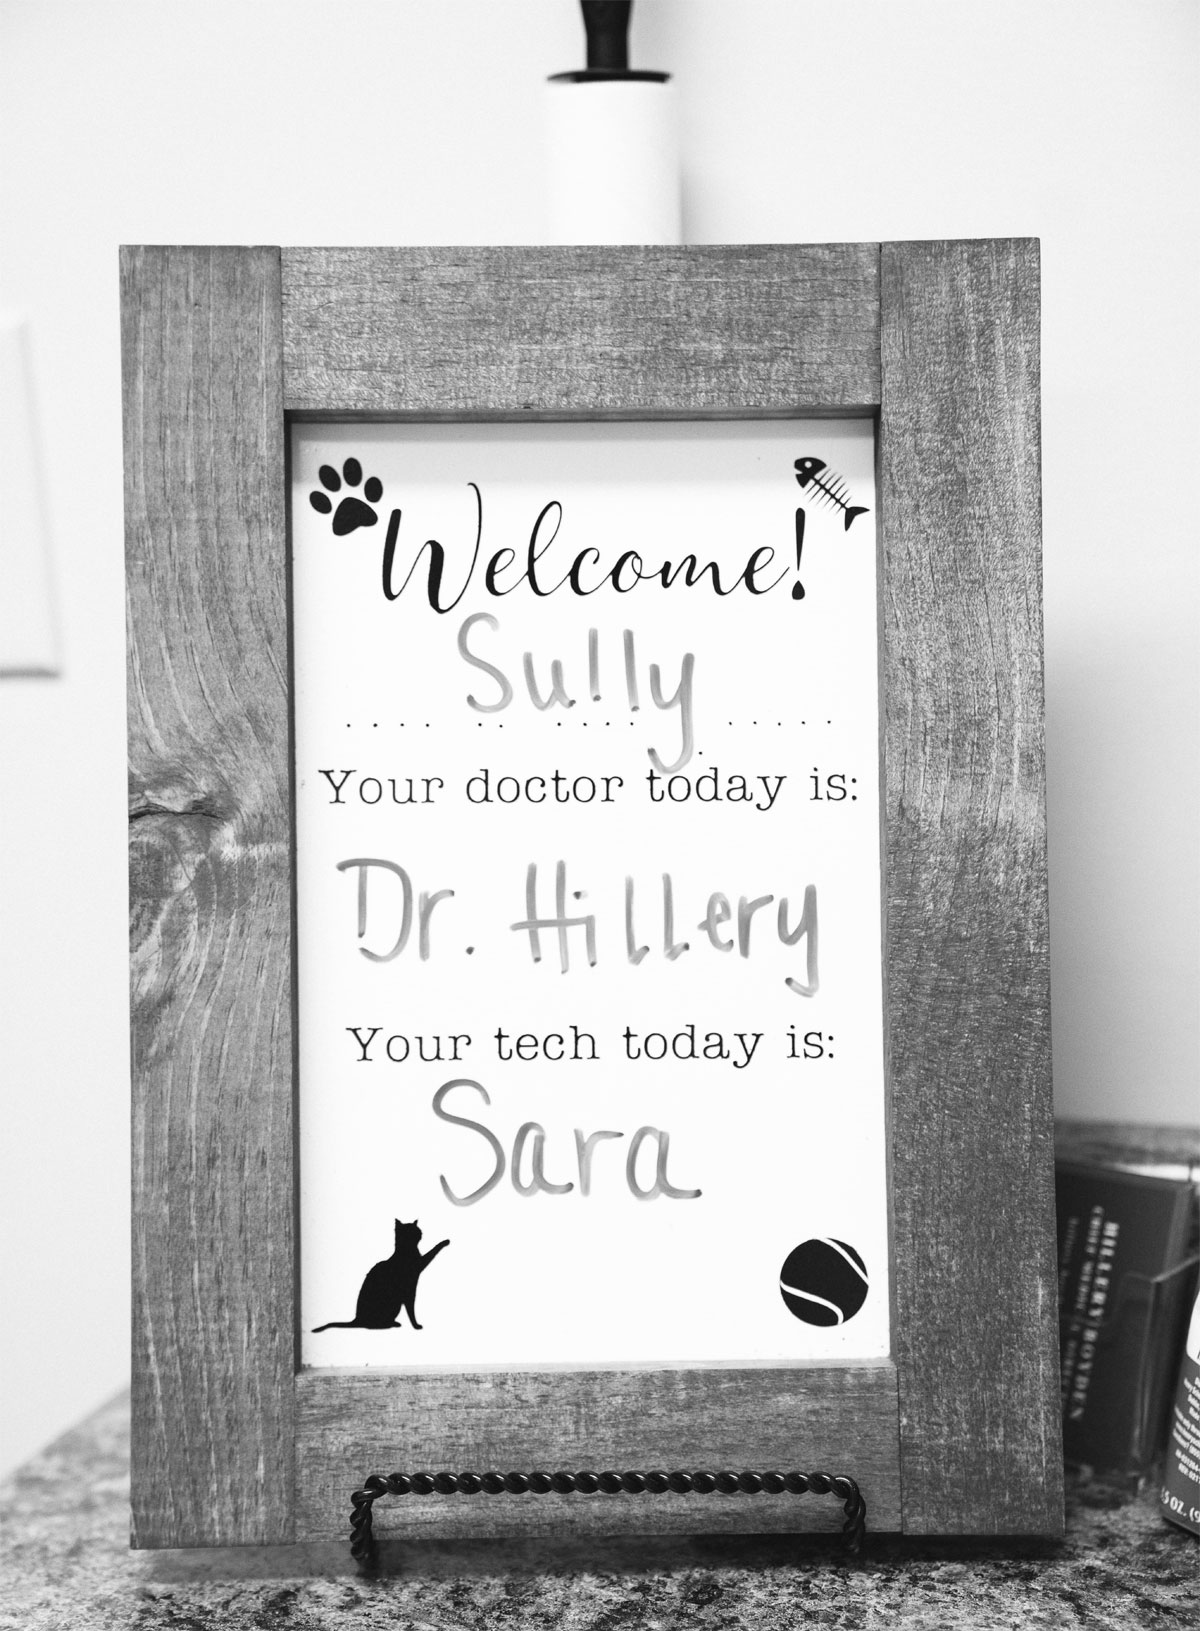 Welcome!
Sully
Your doctor today is:
Dr. Hillery
Your tech today is:
Sara
HILLERY BOYDEN
OZ.